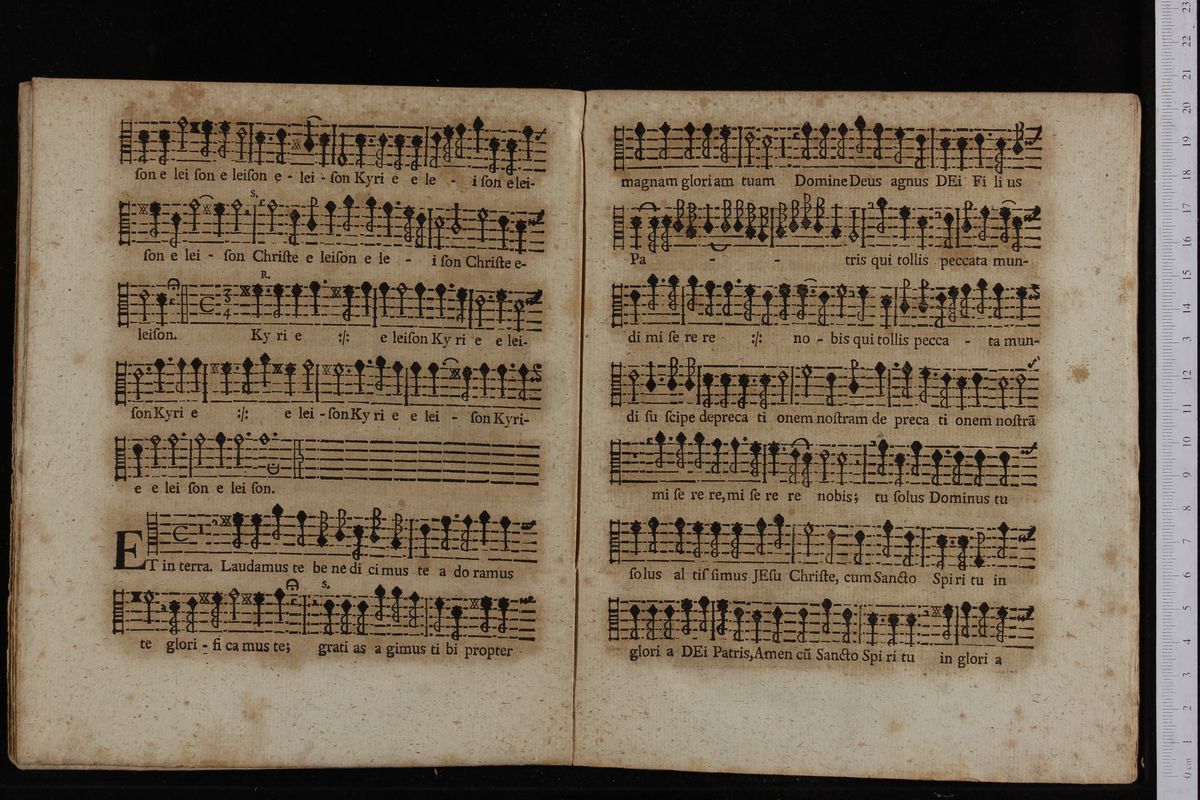 ſon e lei ſon e leiſon e - lei - ſon Kyri e e le - i ſon e lei-
S.
ſon e lei - ſon Chriſte e leiſon e le - i ſon Chriſte e-
R.
leiſon. Ky ri e :/: e leiſon Ky ri e e lei-
ſon Kyri e :/: e lei - ſon Ky ri e e lei - ſon Kyri-
e e lei ſon e lei ſon.
ET in terra. Laudamus te be ne di ci mus te a do ramus
S.
te glori - fi ca mus te; grati as a gimus ti bi propter
magnam gloriam tuam Domine Deus agnus DEi Fi li us
Pa - - - tris qui tollis peccata mun-
di mi ſe re re :/: no - bis qui tollis pecca - ta mun-
di ſu ſcipe depreca ti onem noſtram de preca ti onem noſtrã
mi ſe re re, mi ſe re re nobis; tu ſolus Dominus tu
ſolus al tiſ ſimus JEſu Chriſte, cum Sancto Spi ri tu in
glori a DEi Patris, Amen cũ Sancto Spi ri tu in glori a
0 cm 1 2 3 4 5 6 7 8 9 10 11 12 13 14 15 16 17 18 19 20 21 22 23